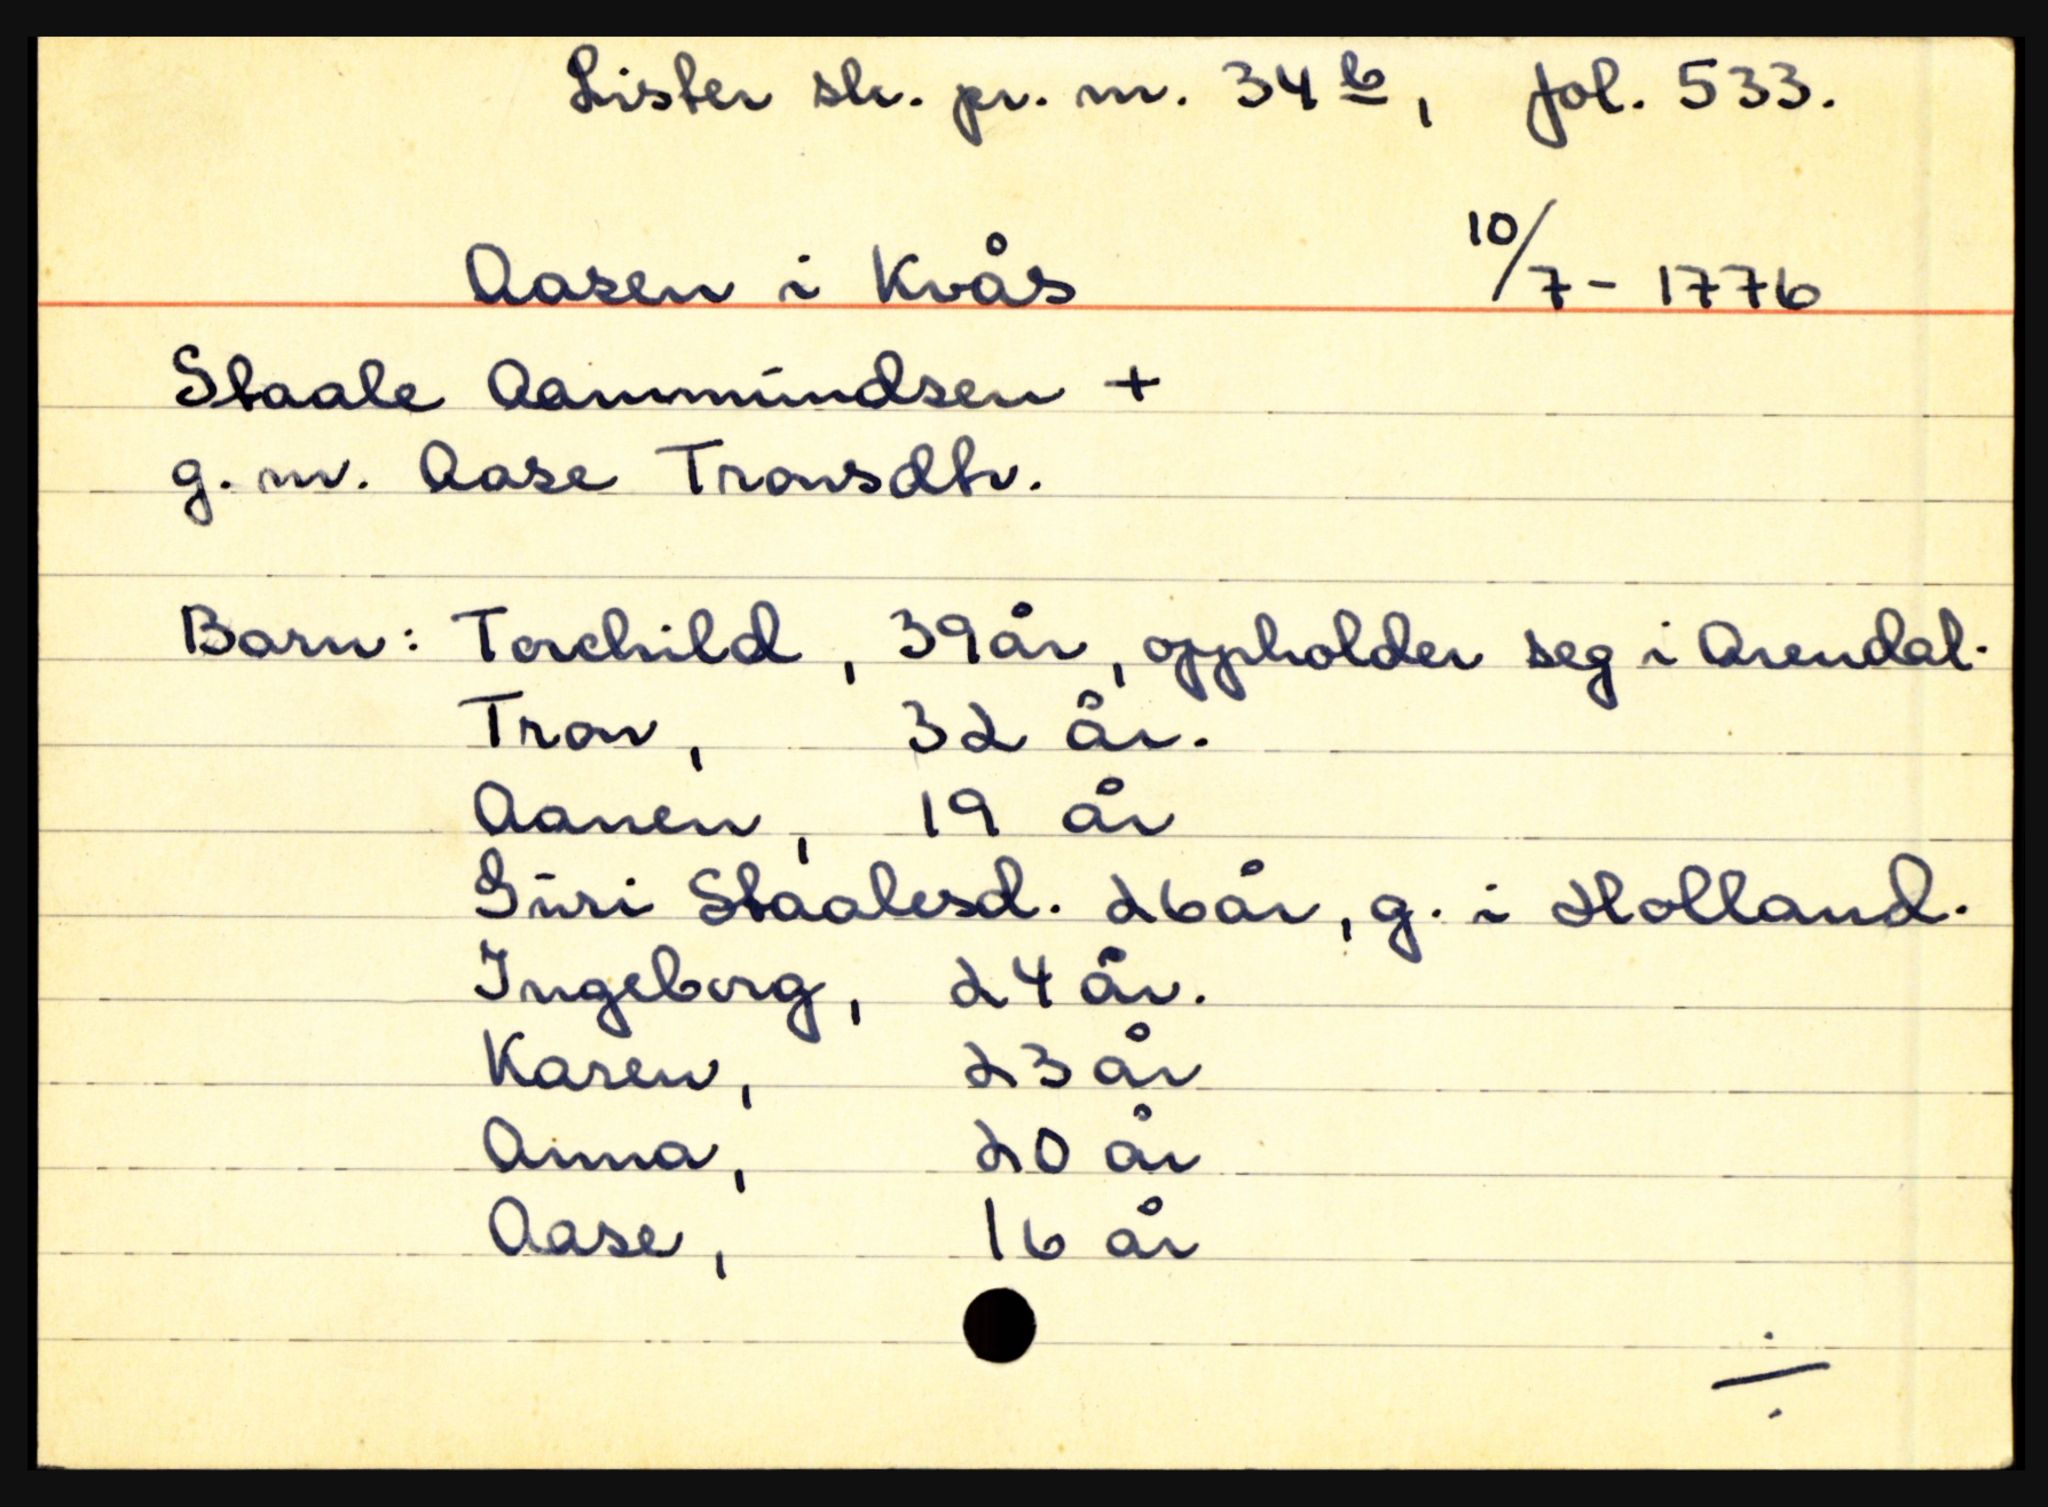 Lister sk. pr. m. 34 b, fol. 533.
Aasen i Kvås 10/7 - 1776
Staale Aammundsen +
g. m. Aase Tronsdtr.
Barn: Torchild, 39 år, oppholder seg i Arendal.
Tron, 32 år.
Aanen, 19 år
Guri Staalesd. 26 år, g. i Holland.
Ingeborg, 24 år.
Karen, 23 år
Anna, 20 år
Aase, 16 år
÷